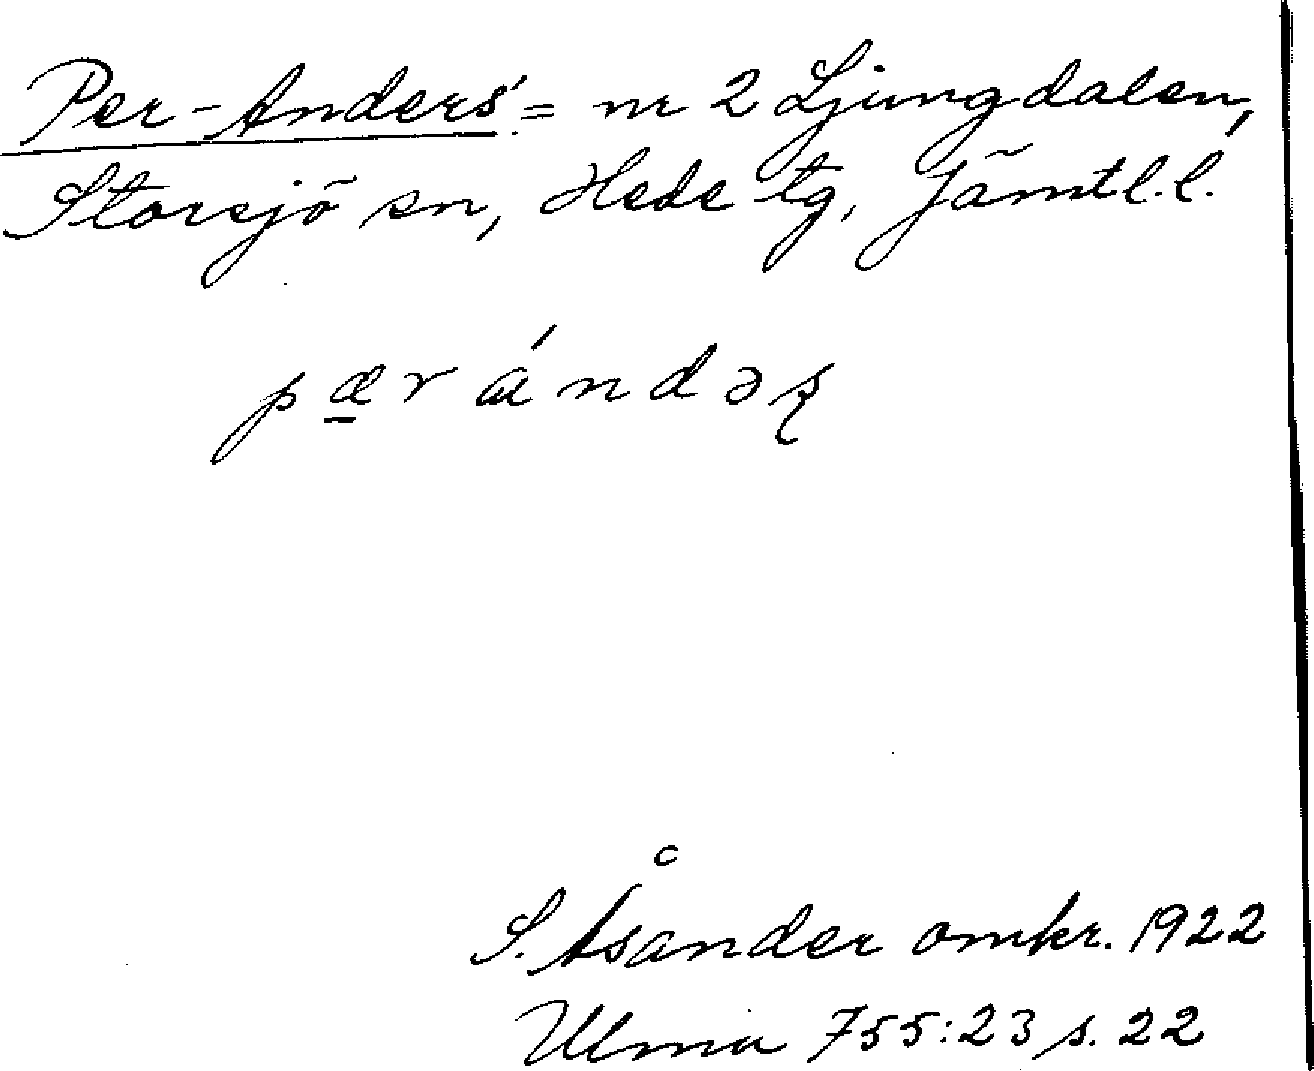 Per-Anders' = nr 2 Ljungdalen,
Storsjö sn, Hede tg, Jämtl. l.
pær ándəʂ
S. Åsander omkr. 1922
Ulma 755:23 s. 22